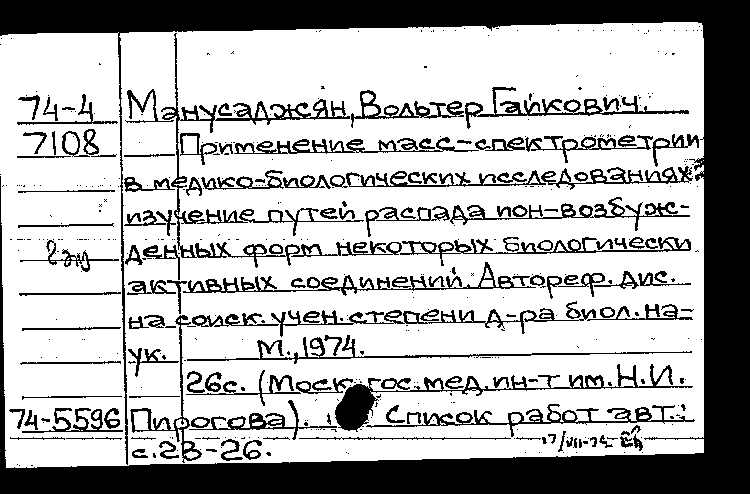 74-4 Манусаджян, Вольтер Гайкович.
7108 Применение масс-спектрометрии
в медико-биологических исследованиях:
изучение путей распада ион-возбуж-
2 экз денных форм некоторых биологически
активных соединений. Автореф. дис.
на соиск. учен. степени д-ра биол. на-
ук. М., 1974.
26с. (Моск. гос. мед. ин-т им. Н.И.
74-5596 Пирогова). Список работ авт.:
с.23-26.
17/VII-74